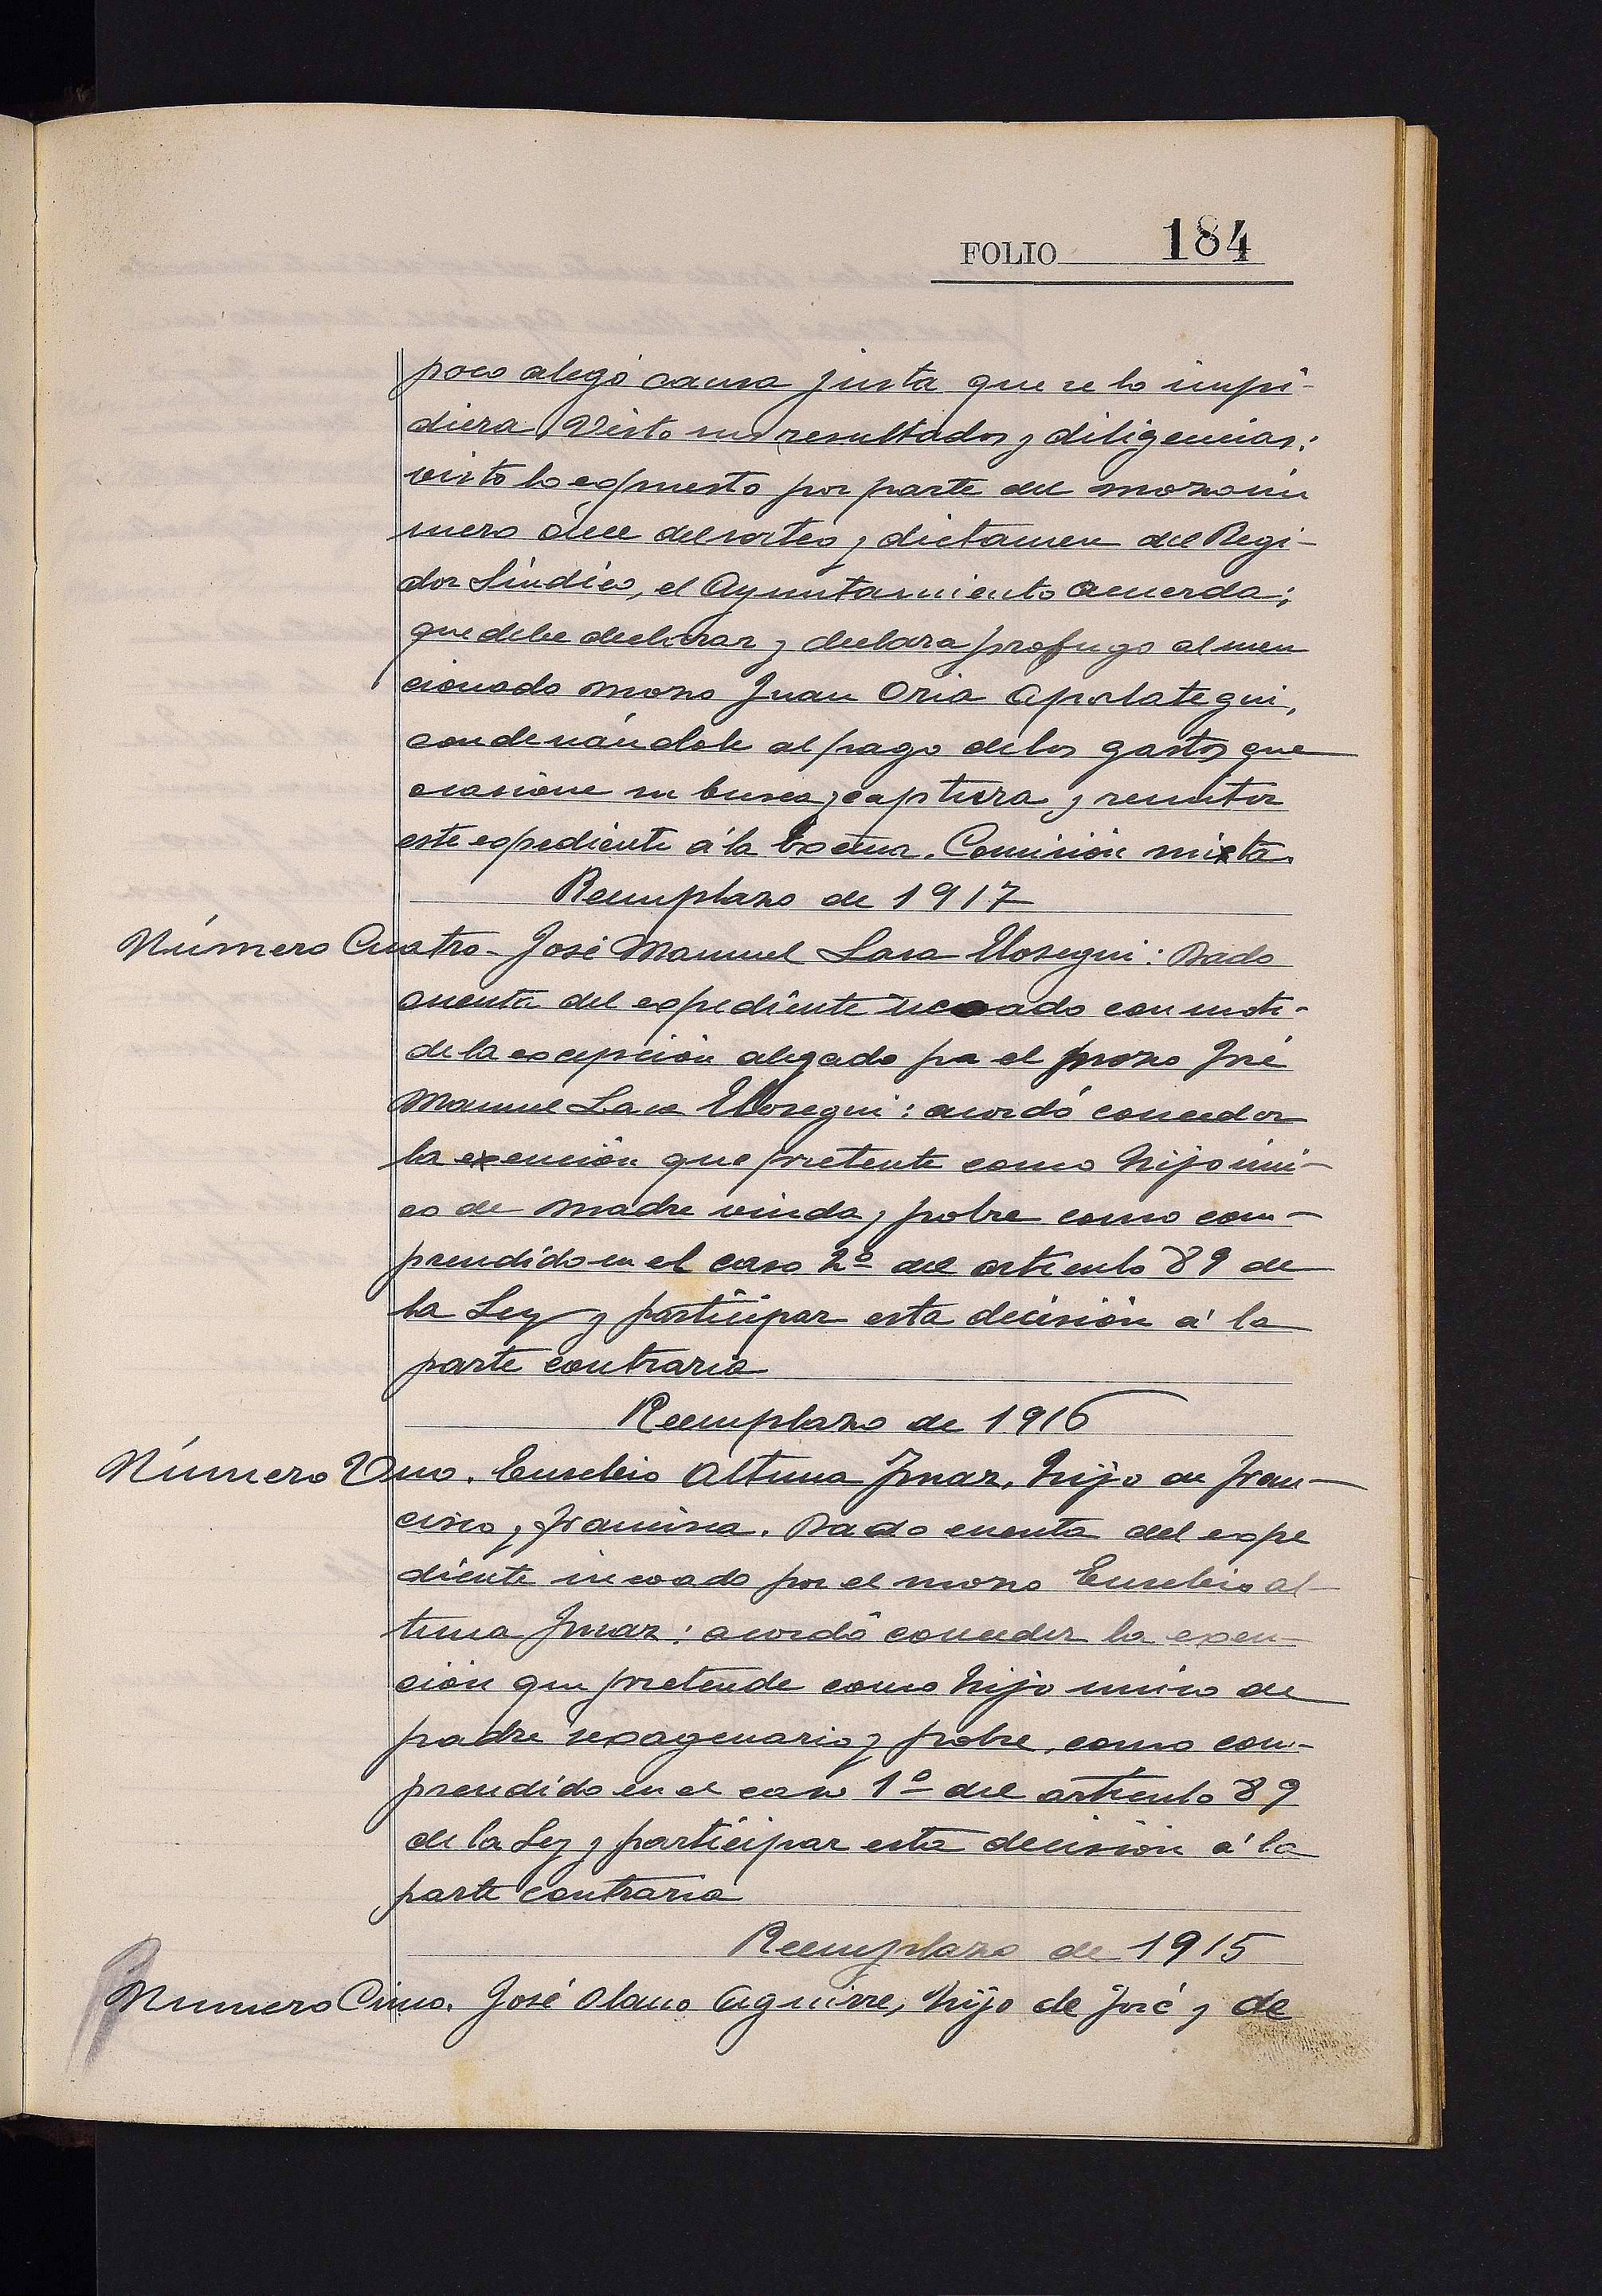 FOLIO 184
poco alegó causa justa que se lo impi-
diera. Visto sus resultados y diligencias:
visto lo expuesto por parte del mozo nú
mero once del sorteo y dictamen del Regi-
dor Síndico, el Ayuntamiento acuerda;
que debe declarar y declara profugo al men
cionado mozo Juan Oria Apalategui,
condenándole al pago de los gastos que
ocasione su busca y captura y remitir
este expediente á la Excma. Comisión mixta.
Reemplazo de 1917
Número Cuatro - José Manuel Lasa Elosegui: Dado
cuenta del expediente incoado con moti-
de la excepción alegado por el mozo José
Manuel Lasa Elosegui: acordó conceder
la exención que pretente como hijo úni-
co de madre viuda y pobre como com-
prendido en el caso 2º del articulo 89 de
la Ley y participar esta decisión á la
parte contraria
Reemplazo de 1916
Número Uno. Eusebio Altuna Ymaz, hijo de Fran-
cisco y Francisca. Dado cuenta del expe
diente incoado por el mozo Eusebio Al-
tuna Ymaz: acordó conceder la exen-
ción que pretende como hijo unico de
padre sexagenario y pobre, como com-
prendido en el caso 1º del articulo 89
de la Ley y participar esta decisión á la
parte contraria
Reemplazo de 1915
Numero Cinco. José Olano Aguirre, hijo de José y de